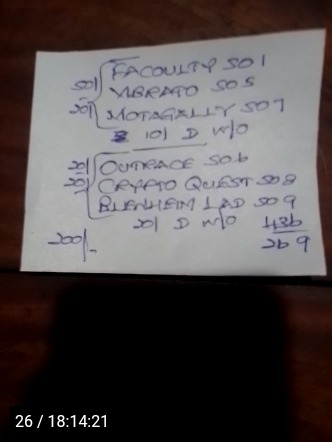 FACOULTY 501
50/ VIBRATO 505
20/ MOTAGALLY 507
10/ D W/O
20/ OUTRAGE 506
20/ CRYPTO QUEST 508
BLENHEIM LAD 509
20/ D W/O 436
200/- 269
26 / 18:14:21